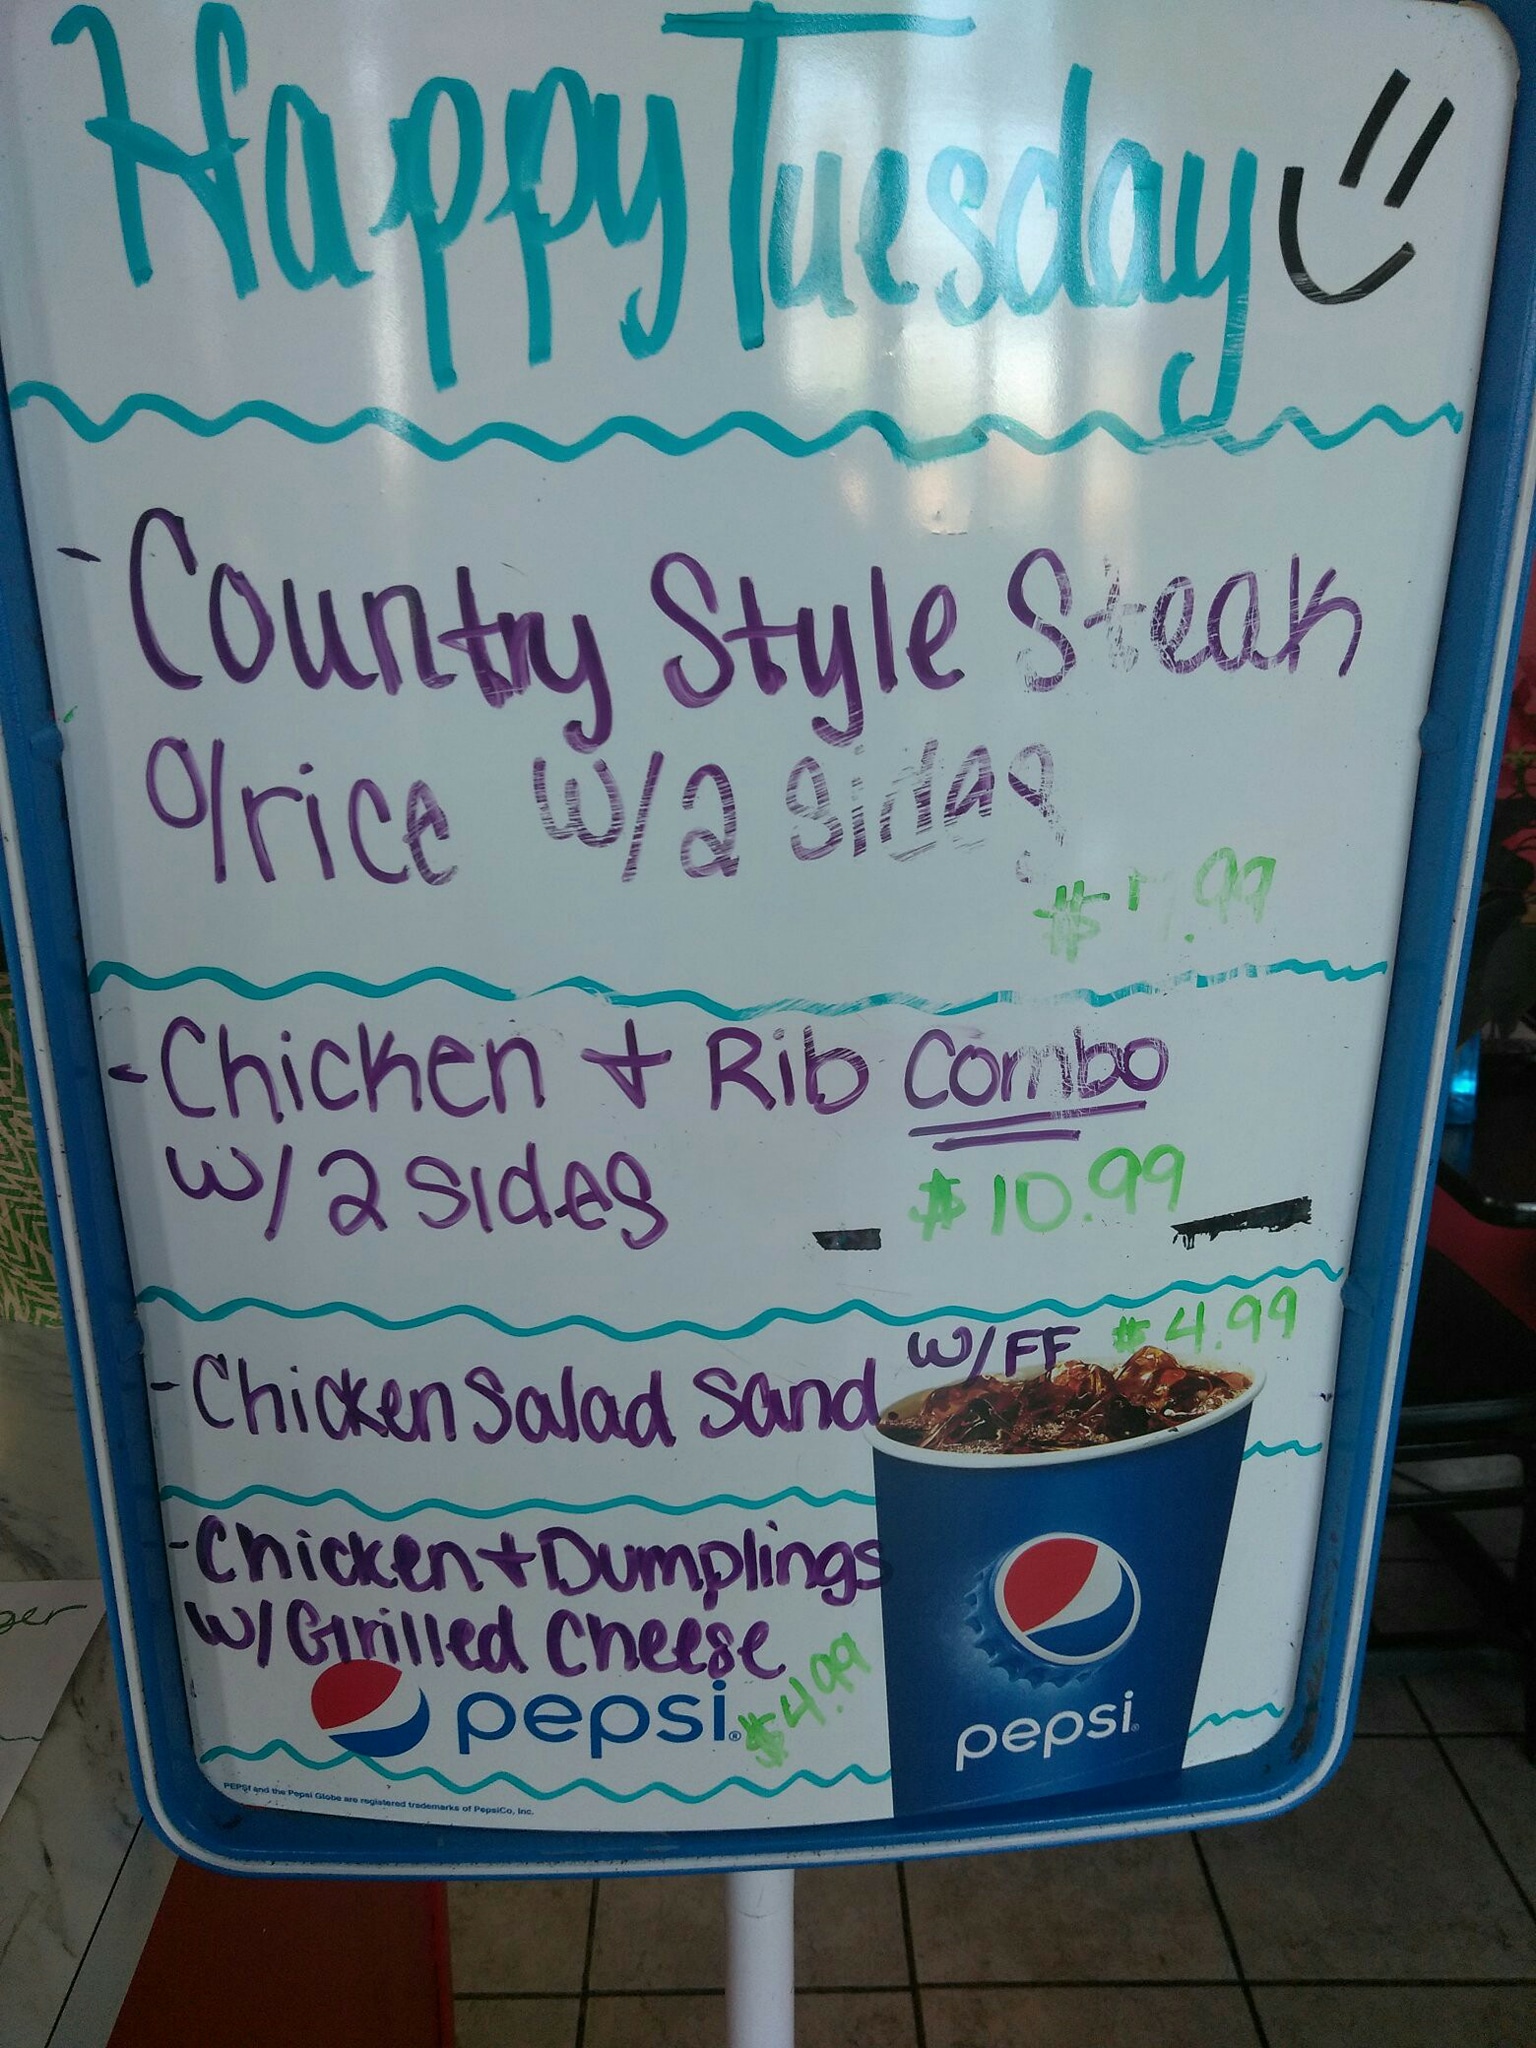 Happy Tuesday
- Country Style Steak
o/rice w/2 sides
- Chicken + Rib Combo
w/2 sides $10.99
w/FF $4.99
- Chicken Salad Sand
- Chicken + Dumplings
w/ Grilled Cheese
$4.99
pepsi®
pepsi®
PEPSI and the Pepsi Globe are registered trademarks of PepsiCo, Inc.